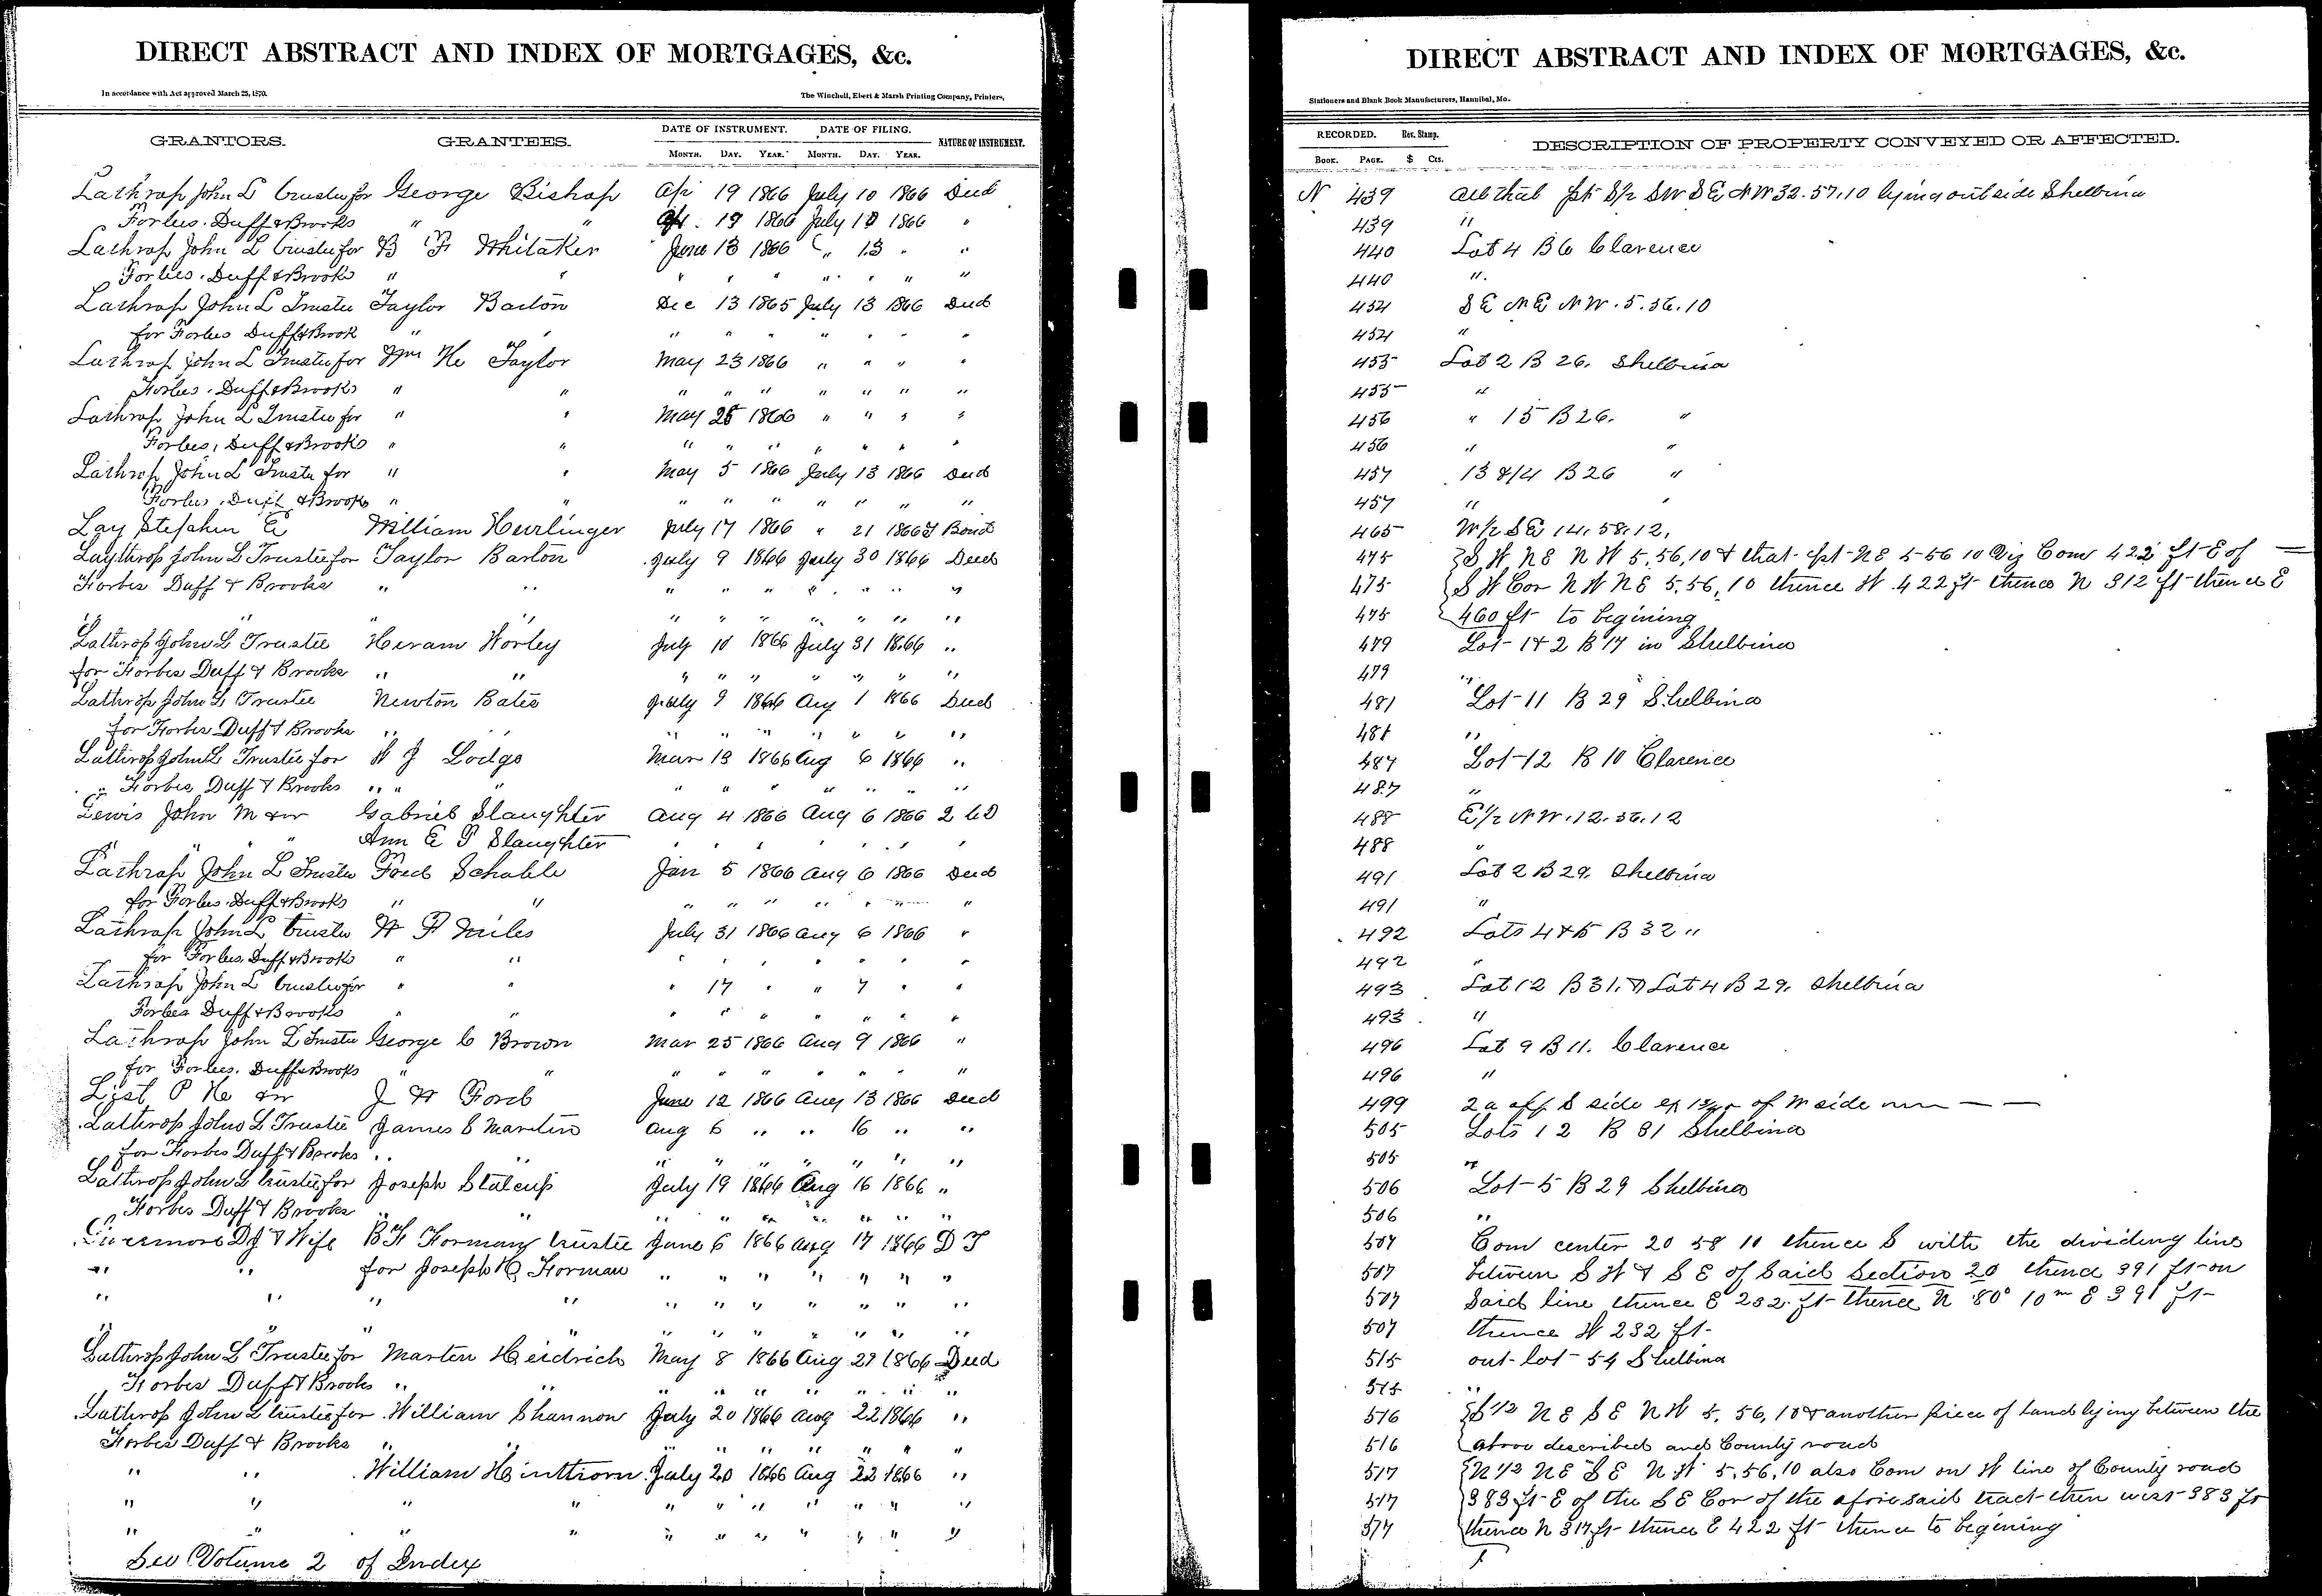 DIRECT ABSTRACT AND INDEX OF MORTGAGES, &c.
In accordance with Act approved March 25, 1870.
The Winchell, Ebert & Marsh Printing Company, Printers,
GRANTORS. GRANTEES. DATE OF INSTRUMENT. DATE OF FILING. NATURE OF INSTRUMENT.
MONTH. DAY. YEAR. MONTH. DAY. YEAR.
Lathrop John L trustee for George Bishop Apr 19 1866 July 10 1866 Deed
Forbes. Duff & Brooks " " Apr. 19 1866 July 10 1866 "
Lathrop John L trustee for B F Whitaker June 13 1866 " 13 " "
Forbes. Duff & Brooks " " " " " " " " "
Lathrop John L Trustee Taylor Barton Dec 13 1865 July 13 1866 Deed
for Forbes Duff & Brook " " " " " " " " "
Lathrop John L Trustee for Wm He Taylor May 23 1866 " " " "
Forbes. Duff & Brooks " " " " " " " " "
Lathrop John L Trustee for " " May 25 1866 " " " "
Forbes, Duff & Brooks " " " " " " " " "
Lathrop John L Truste for " " May 5 1866 July 13 1866 Deed
Forbes. Duff & Brooks " " " " " " " " "
Lay Stephen E William Hurlinger July 17 1866 " 21 1866 T Bond
Laythrop John L Trustee for Taylor Barton July 9 1866 July 30 1866 Deed
Forbes Duff & Brooks " " " " " " " " "
" " " " " " " " " " "
Lathrop John L Trustee Hiram Worley July 10 1866 July 31 1866 "
for Forbes Duff & Brooks " " " " " " " " "
Lathrop John L Trustee Newton Bates July 9 1866 Aug 1 1866 Deed
for Forbes Duff & Brooks " " " " " " " " "
Lathrop John L Trustee for W J Lodge Mar 13 1866 Aug 6 1866 "
" Forbes Duff & Brooks " " " " " " " " "
Lewis John M & w Gabriel Slaughter Aug 4 1866 Aug 6 1866 2 CD
" " Ann E P Slaughter " " " " " " "
Lathrop John L Trustee Fred Schable Jan 5 1866 Aug 6 1866 Deed
for Forbes Duff & Brooks " " " " " " " " "
Lathrop John L trustee W F Miles July 31 1866 Aug 6 1866 "
for Forbes. Duff & Brooks " " " " " " " " "
Lathrop John L trustee for " " " 17 " " 7 " "
Forbes Duff & Brooks " " " " " " " " "
Lathrop John L Trustee George C Brown Mar 25 1866 Aug 9 1866 "
for Forbes. Duff & Brooks " " " " " " " " "
List P He & w J W Ford June 12 1866 Aug 13 1866 Deed
Lathrop John L Trustee James C Martin Aug 6 " " 16 " "
for Forbes Duff & Brooks " " " " " " " " "
Lathrop John L trustee for Joseph Stalcup July 19 1866 Aug 16 1866 "
Forbes Duff & Brooks " " " " " " " " "
Livermore D J & Wife B F Forman trustee June 6 1866 Aug 17 1866 D T
" " for Joseph Forman " " " " " " "
" " " " " " " " " " "
" " " " " " " " " " "
Lathrop John L Trustee for Marten Heidrich May 8 1866 Aug 27 1866 Deed
Forbes Duff & Brooks " " " " " " " " "
Lathrop John L trustee for William Shannon July 20 1866 Aug 22 1866 "
Forbes Duff & Brooks " " " " " " " " "
" " William Hinthorn July 20 1866 Aug 22 1866 "
" " " " " " " " " " "
" " " " " " " " " " "
See Volume 2 of Index
DIRECT ABSTRACT AND INDEX OF MORTGAGES, &c.
Stationers and Blank Book Manufacturers, Hannibal, Mo.
RECORDED. Rev. Stamp. DESCRIPTION OF PROPERTY CONVEYED OR AFFECTED.
BOOK. PAGE. $ Cts.
N 439 All that pt S/2 SW SE NW 32. 57. 10 lying outside Shelbina
439 "
440 Lot 4 B 6 Clarence
440 "
454 SE NE NW. 5. 56. 10
454 "
455 Lot 2 B 26. Shelbina
455 "
456 " 15 B 26. "
456 " "
457 13 & 14 B 26 "
457 " "
465 W/2 SE 14. 58. 12.
475 S W NE N W 5. 56, 10 & that pt NE 5-56 10 Viz Com 422 ft E of
475 S W Cor N W NE 5. 56, 10 thence W 422 ft thence N 312 ft thence E
475 460 ft to begining
479 Lot 1 & 2 B 17 in Shelbina
479 "
481 Lot 11 B 29 Shelbina
481 "
487 Lot 12 B 10 Clarence
487 "
488 E 1/2 N W. 12. 56. 12
488 "
491 Lot 2 B 29. Shelbina
491 "
492 Lots 4 & 5 B 32 "
492 "
493 Lot 12 B 31. & Lot 4 B 29. Shelbina
493 "
496 Lot 9 B 11. Clarence
496 "
499 2 a off S side of W side
505 Lots 1 2 B 31 Shelbina
505 "
506 Lot 5 B 29 Shelbina
506 "
507 Com center 20 58 10 thence S with the dividing line
507 between S W & S E of Said Section 20 thence 391 ft on
507 Said line thence E 232 ft thence N 80° 10m E 391 ft
507 thence W 232 ft.
515 out-lot 54 Shelbina
515 "
516 S 1/2 N E S E N W 5, 56, 10 & another piece of land lying between the
516 above described and County road
517 N 1/2 N E S E N W 5. 56, 10 also Com on W line of County road
517 383 ft E of the S E Cor of the aforesaid tract then west 383 ft
517 thence N 317 ft thence E 422 ft thence to begining